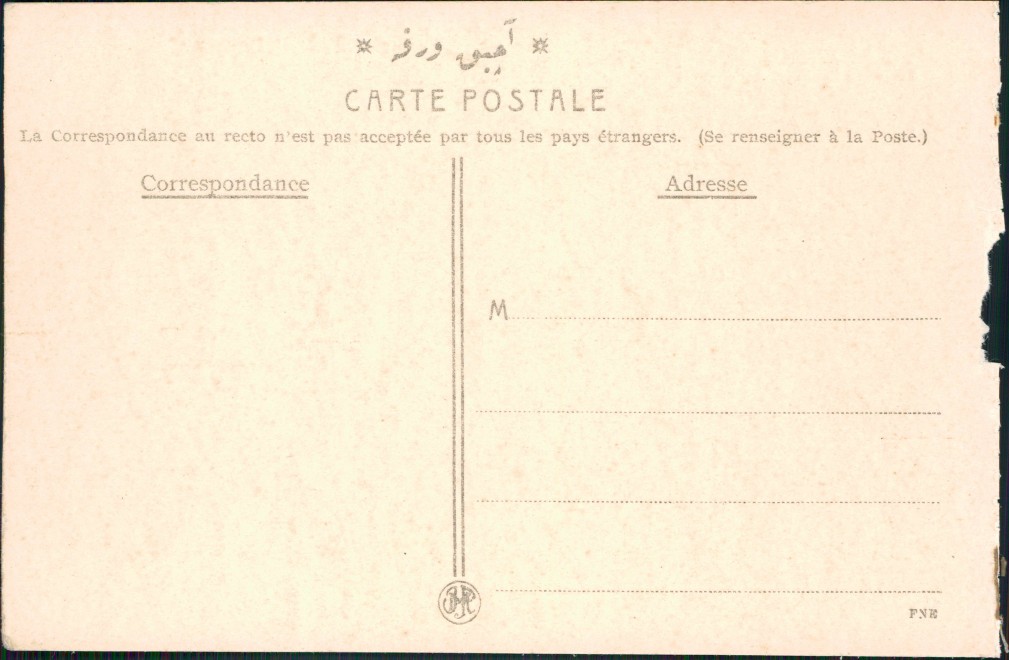 * آچیق ورقه *
CARTE POSTALE
La Correspondance au recto n'est pas acceptée par tous les pays étrangers. (Se renseigner à la Poste.)
Correspondance
Adresse
M
FNE